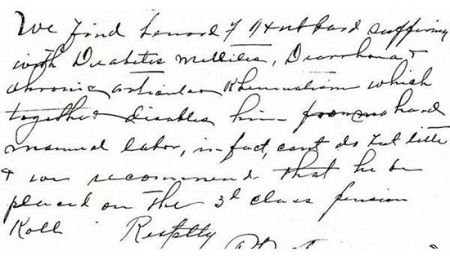 We find Leonard J Hubbard suffering
with Diabetes Mellites, Diarrhoea &
chronic articular Rheumatism which
together disables him from hard
manual labor, in fact, cant do but little
& we recommend that he be
placed on the 3d class pension
Roll Resptly